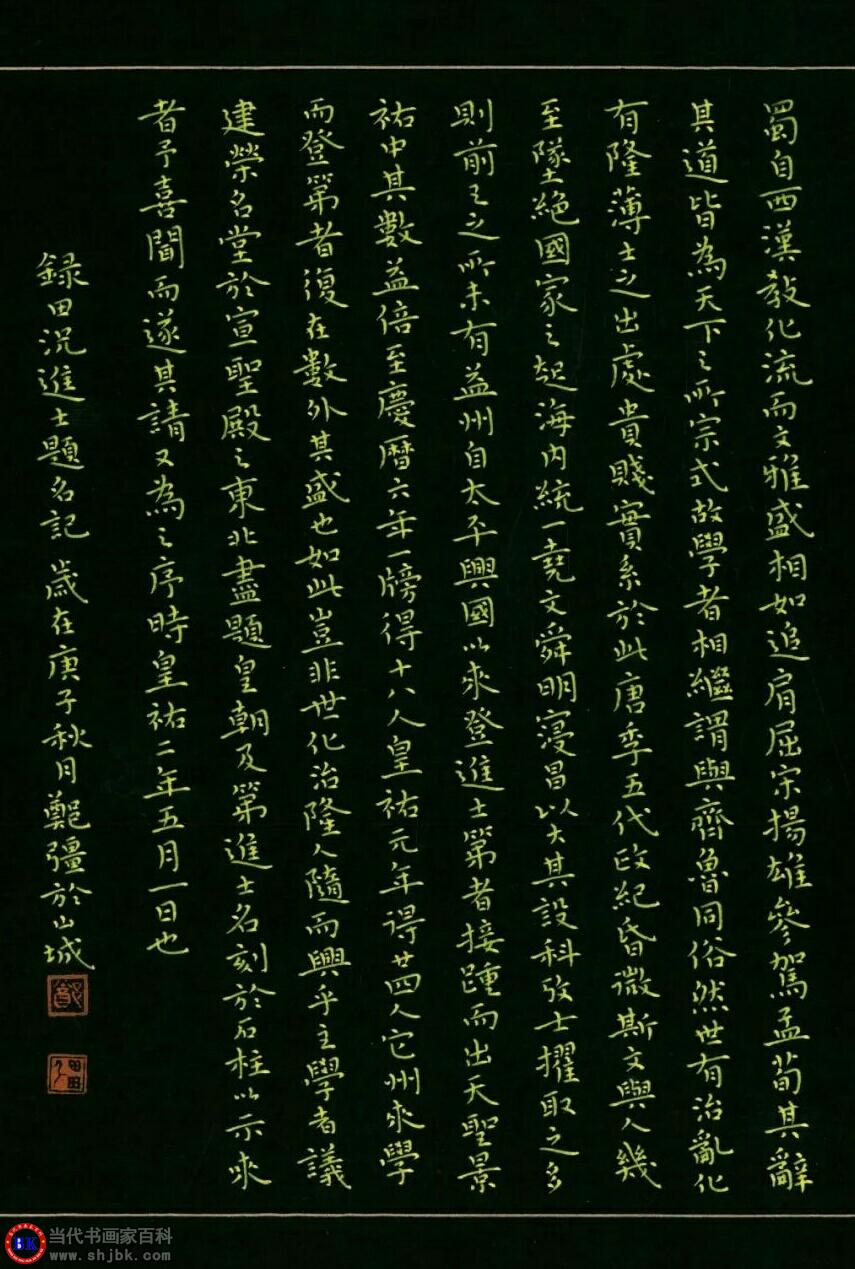 蜀自西漢教化流而文雅盛相如追肩屈宋揚雄參駕孟荀其辭
其道皆為天下之所宗式故學者相繼謂與齊魯同俗然世有治亂化
有隆薄士之出處貴賤實系於此唐季五代政紀昏微斯文與人幾
至墜絕國家之起海内統一堯文舜明寖昌以大其設科攷士擢取之多
則前之所未有益州自太平興國以來登進士第者接踵而出天聖景
祐中其數益倍至慶曆六年一牓得十八人皇祐元年得廿四人它州來學
而登第者復在數外其盛也如此豈非世化治隆人隨而興乎主學者議
建榮名堂於宣聖殿之東北盡題皇朝及第進士名刻於石柱以示來
者予喜聞而遂其請又為之序時皇祐二年五月一日也
録田況進士題名記 歲在庚子秋月鄭彊於山城
BK 当代书画家百科
www.shjbk.com